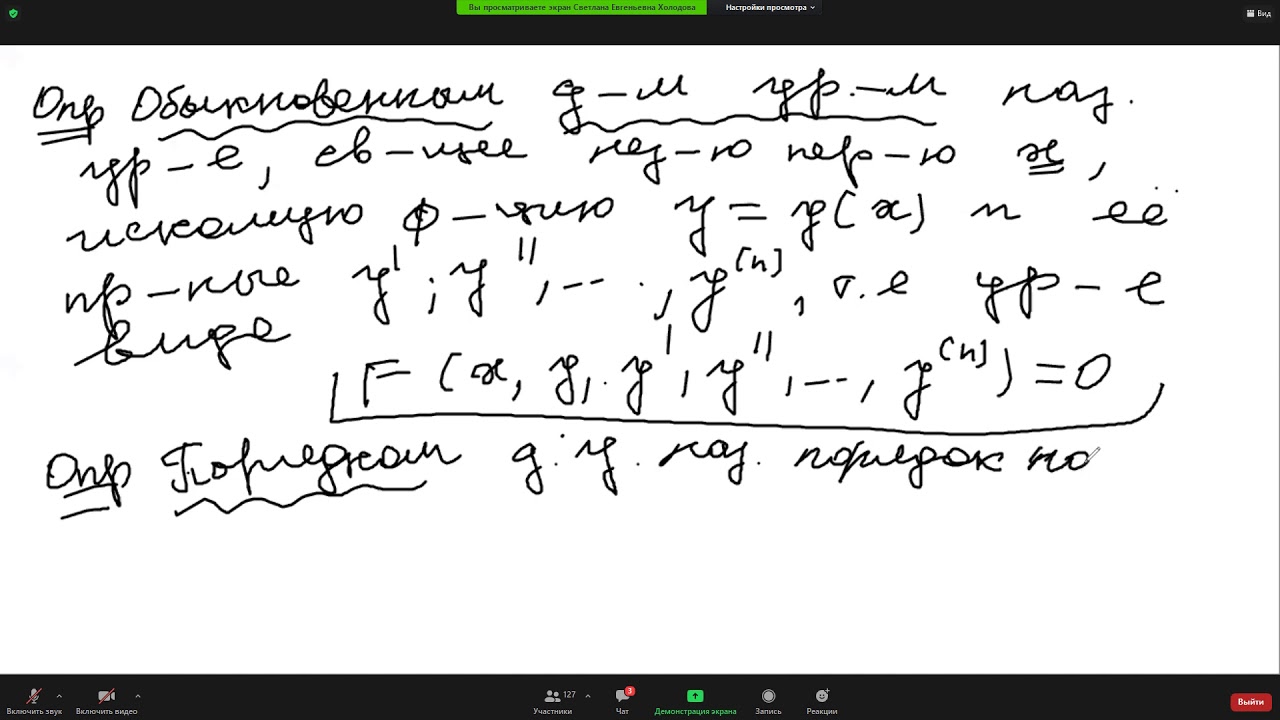 Вы просматриваете экран Светлана Евгеньевна Холодова Настройки просмотра
Вид
Опр Обыкновенным д-м ур.-м наз.
ур-е, св-щее нез-ю пер-ю x,
искомую ф-цию y = y(x) и её
пр-ные y'; y'', ..., y^(n), т.е ур-е
вида
F (x, y, y', y'', ..., y^(n)) = 0
Опр Порядком д.у. наз. порядок на
Включить звук Включить видео Участники 127 Чат 3 Демонстрация экрана Запись Реакции Выйти